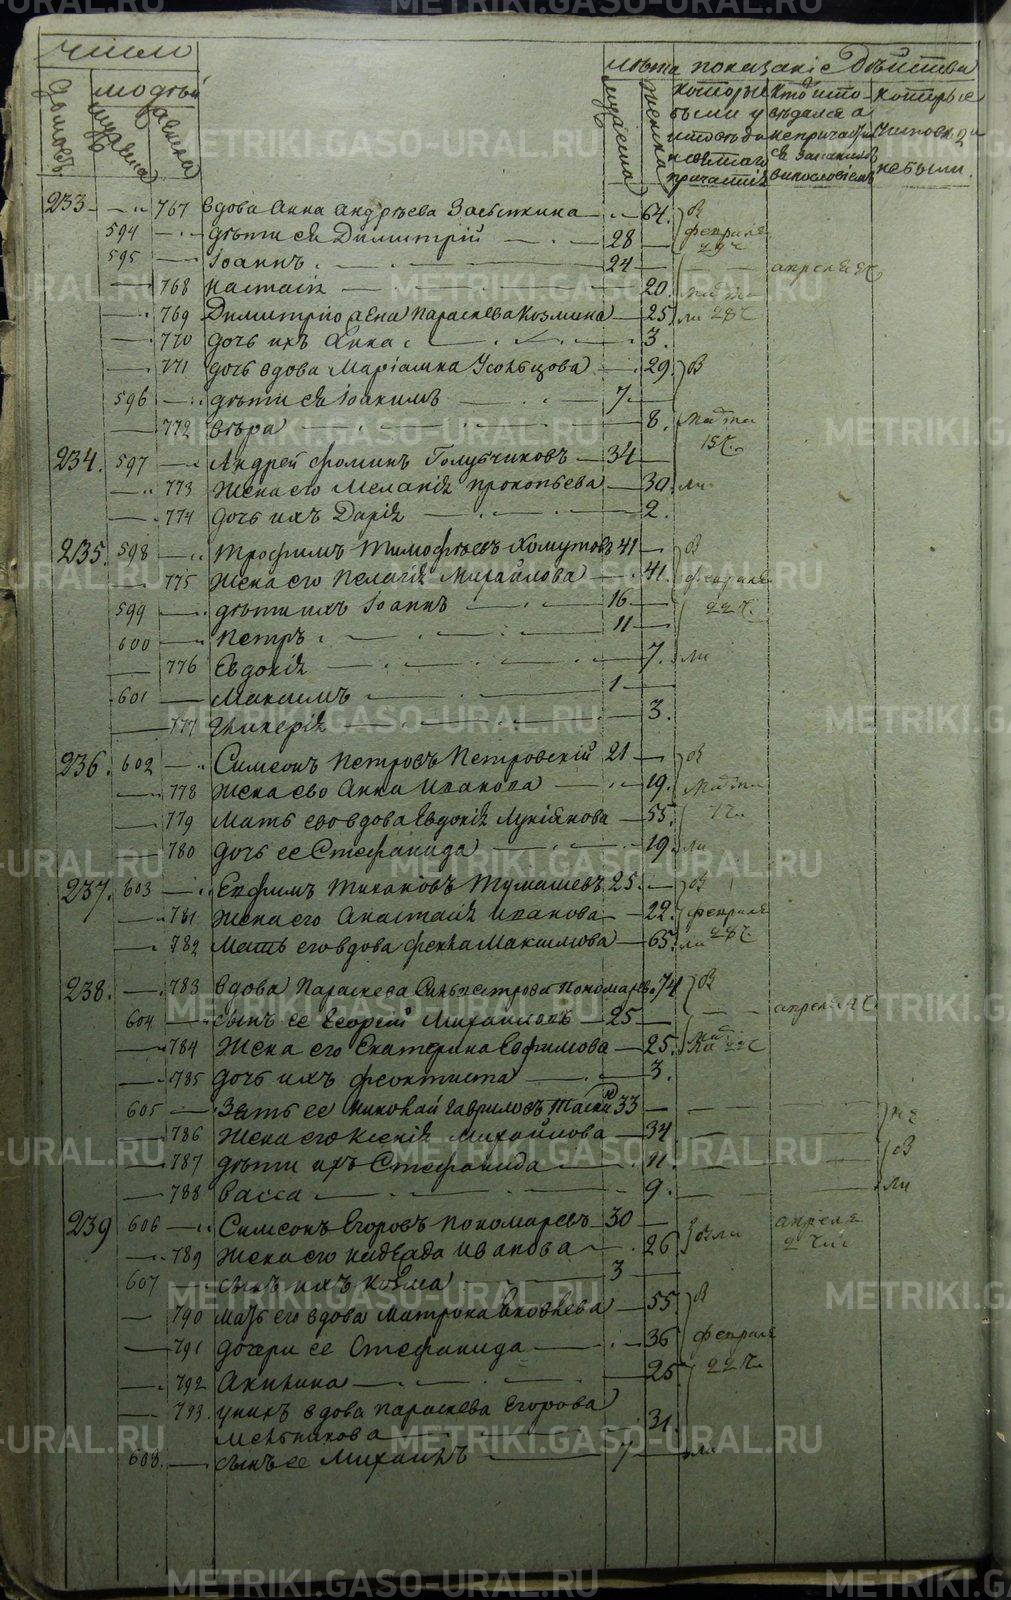 число
лѣта показаніе Дѣйства
домовъ
людей
мужеска
женска
мужеска
женска
которые были у исповѣди и святаго причастія
которые у исповѣди не были.
233 767 вдова Анна Андрѣева Засыпкина 64. бы
594 дѣти ея Димитрій 28 февраля 29 ч
595 Іоаннъ 24 апреля
768 Настасія 20. марта
769 Димитрія жена Параскева Козмина 25 ли 28 ч
770 дочь ихъ Анна 3.
771 дочь вдова Маріамна Усольцова 29 бы
596 дѣти ея Іоакимъ 7
772 Вѣра 8. марта 15 ч.
234. 597 Андрей Фоминъ Голубчиковъ 34
773 жена его Меланія Прокопьева 30. ли
774 дочь ихъ Дарія 2.
235. 598 Трофимъ Тимофѣевъ Хомутовъ 41 бы
775 жена его Пелагія Михайлова 41. февраля
599 дѣти ихъ Іоаннъ 16 22 ч.
600 Петръ 11
776 Евдокія 7. ли
601 Максимъ 1
777 Гликерія 3.
236. 602 Симеонъ Петровъ Петровскій 21 бы
778 жена ево Анна Иванова 19. марта
779 мать ево вдова Евдокія Лукіянова 55. 7 ч
780 дочь ее Стефанида 19. ли
237. 603 Евфимъ Тихановъ Тумашевъ 25. бы
781 жена его Анастасія Иванова 22. февраля
782 мать его вдова Фекла Максимова 65. ли 28 ч
238. 783 вдова Параскева Сильвестрова Пономарева 74 бы
604 сынъ ее Георгій Михайловъ 25 апреля
784 жена его Екатерина Евфимова 25. 22 ч
785 дочь ихъ Феоктиста 3.
605 зять ее Николай Гавриловъ 33 не
786 жена его Ксенія Михайлова 34 бы
787 дѣти ихъ Стефанида 11.
788 Васса 9. ли
239 606 Симеонъ Егоровъ Пономаревъ 30 апреля
789 жена его Надежда Иванова 26 были 2 ч
607 сынъ ихъ Козма 3
790 мать его вдова Матрона Яковлева 55. бы
791 дочери ее Стефанида 36 февраля
792 Акилина 25 22 ч
793. вдова Параскева Егорова
Мельникова 31.
608. сынъ ее Михаилъ 7 ли
METRIKI.GASO-URAL.RU